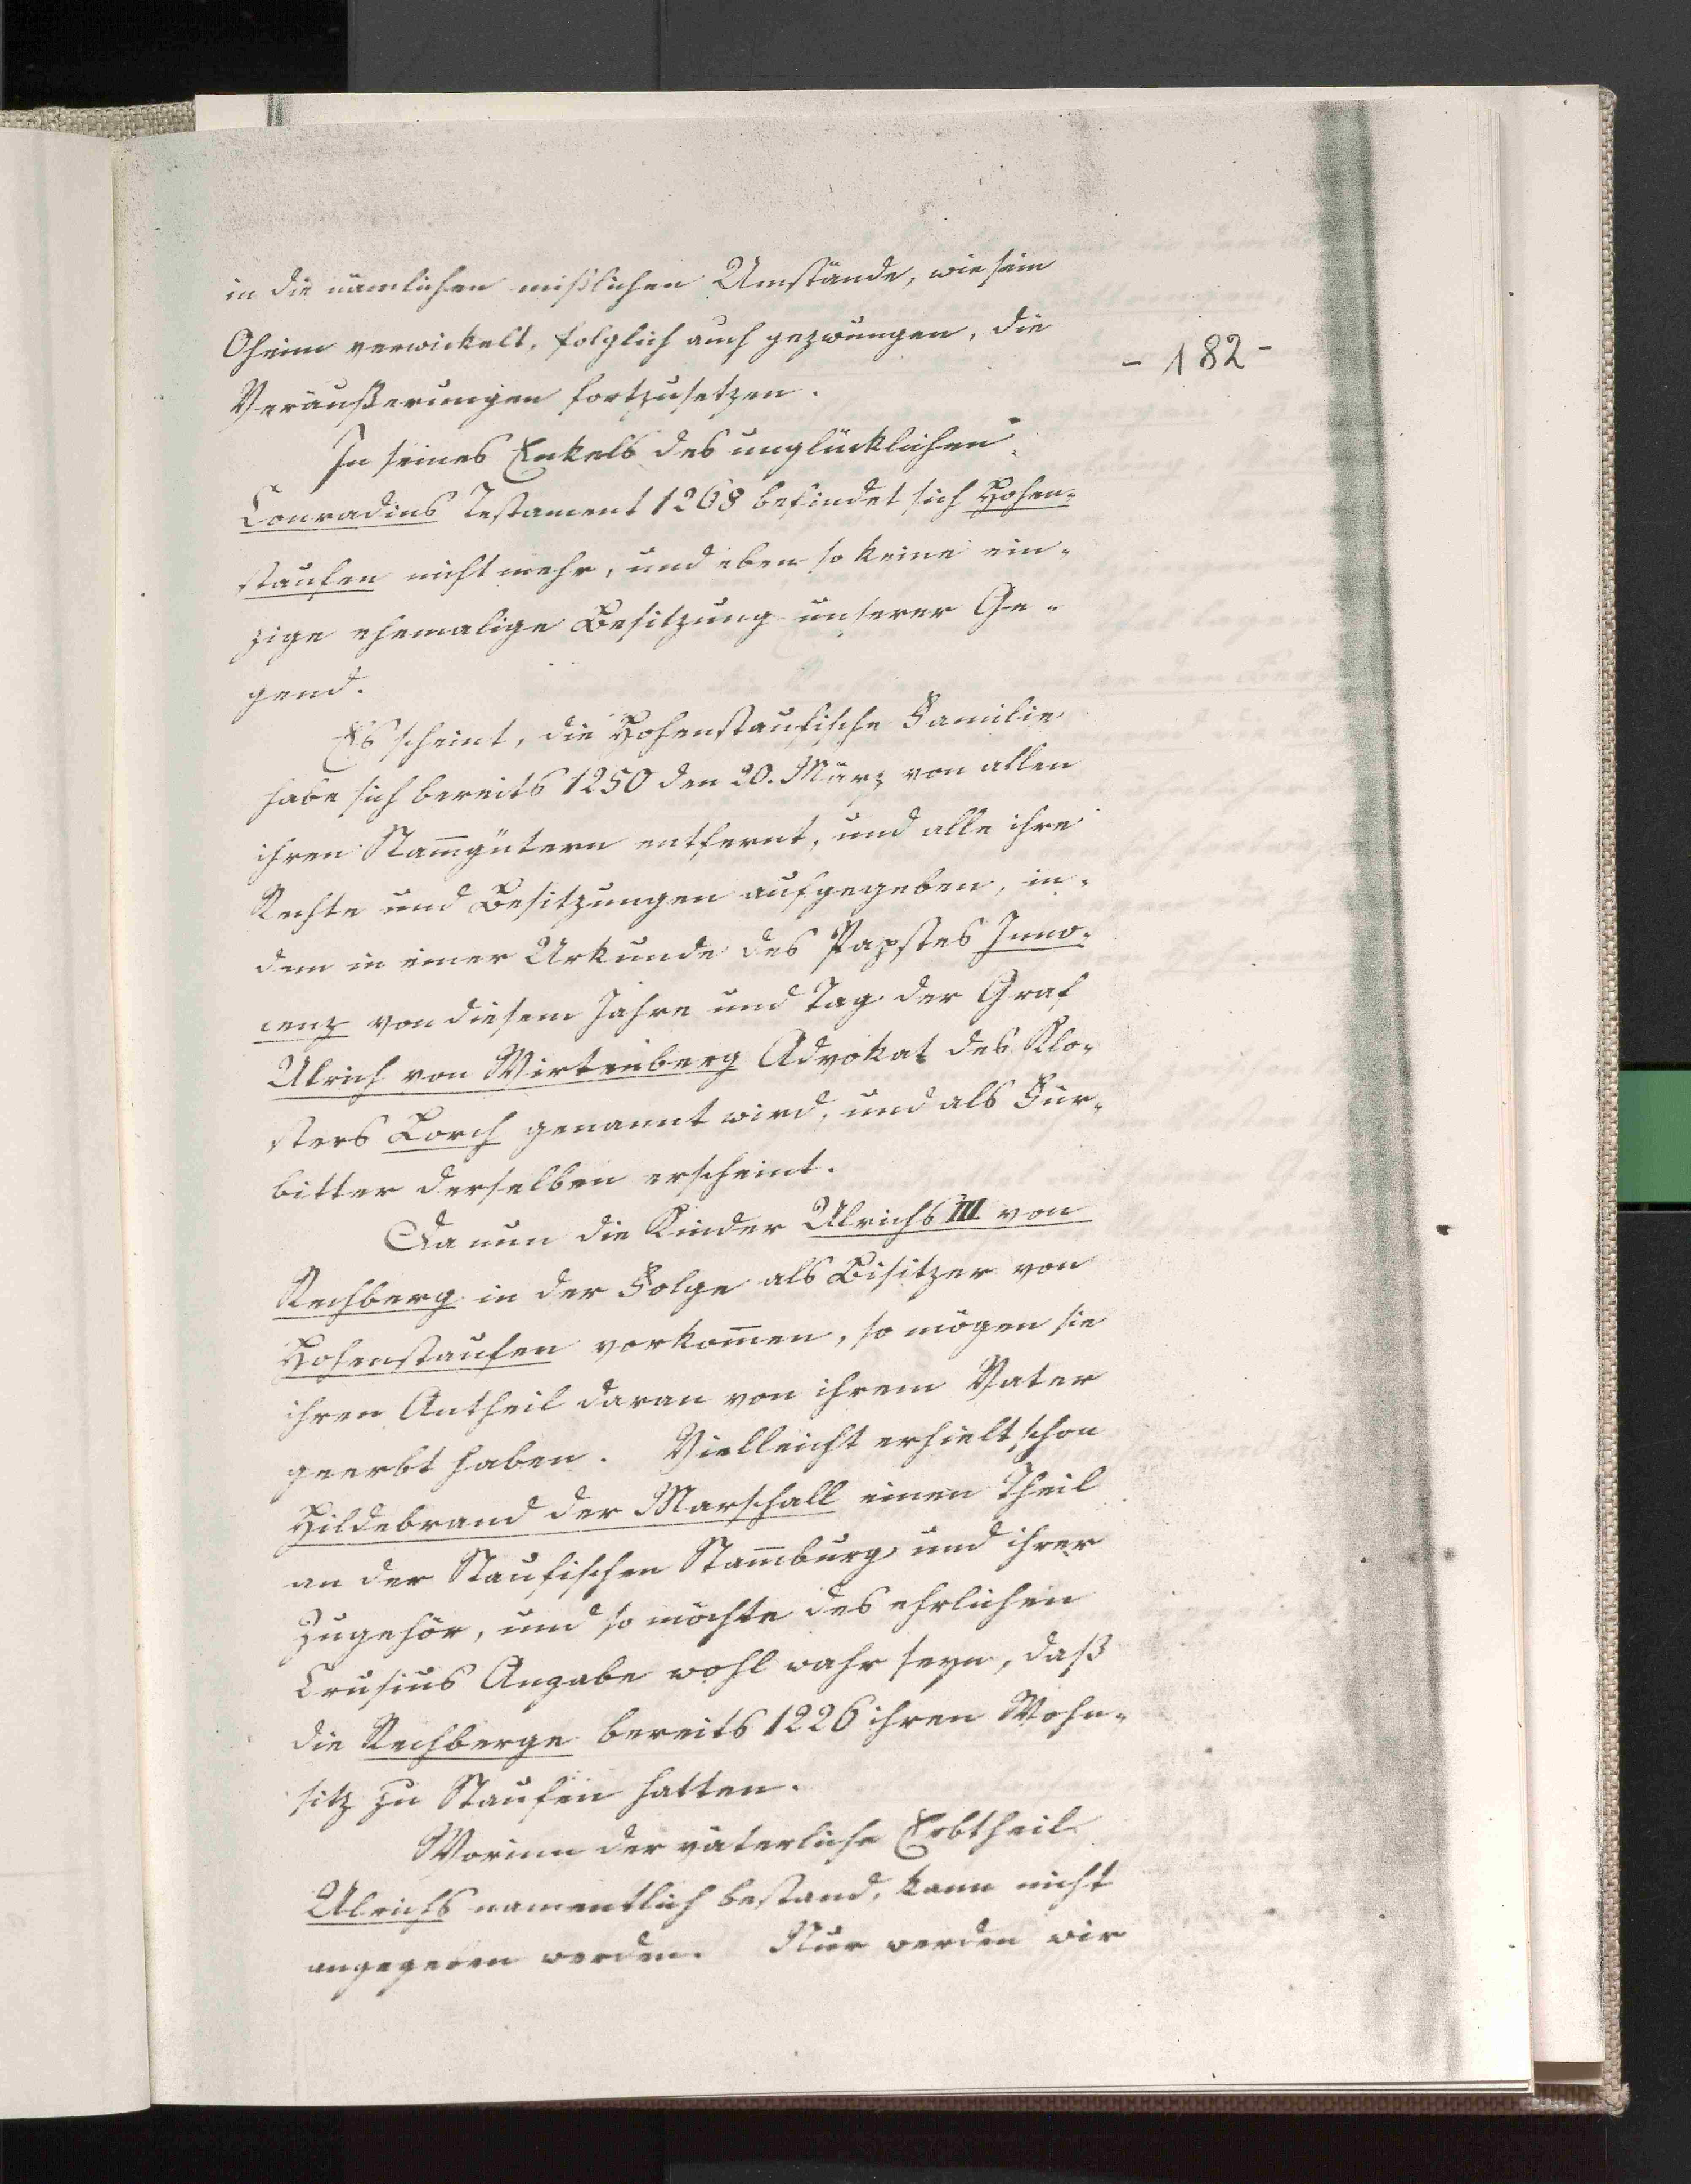 in die nämlichen mißlichen Umstände, wie sein
Oheim verwickelt, folglich auch gezwungen, die
- 182 -
Veräußerungen fortzusetzen.
In seines Enkels des unglücklichen
Conradins Testament 1268 befindet sich Hohen-
staufen nicht mehr, und eben so keine ein-
zige ehemalige Besitzung unserer Ge-
gend.
Es scheint, die Hohenstaufische Familie
habe sich bereits 1250 den 20. März von allen
ihren Stam̅gütern entfernt, und alle ihre
Rechte und Besitzungen aufgegeben, in-
dem in einer Urkunde des Papstes Inno-
cenz von diesem Jahre und Tag der Graf
Ulrich von Wirtenberg Advokat des Klo-
sters Lorch genannt wird, und als Für-
bitter derselben erscheint.
Da nun die Kinder Ulrichs III von
Rechberg in der Folge als Besitzer von
Hohenstaufen vorkom̅en, so mögen sie
ihren Antheil daran von ihrem Vater
geerbt haben. Vielleicht erhielt schon
Hildebrand der Marschall einen Theil
an der Staufischen Stam̅burg und ihrer
Zugehör, und so möchte des ehrlichen
Crusius Angabe wohl wahr seyn, daß
die Rechberge bereits 1226 ihren Wohn-
sitz zu Staufen hatten.
Worinn der väterliche Erbtheil
Ulrichs namentlich bestand, kann nicht
angegeben werden. Nur werden wir